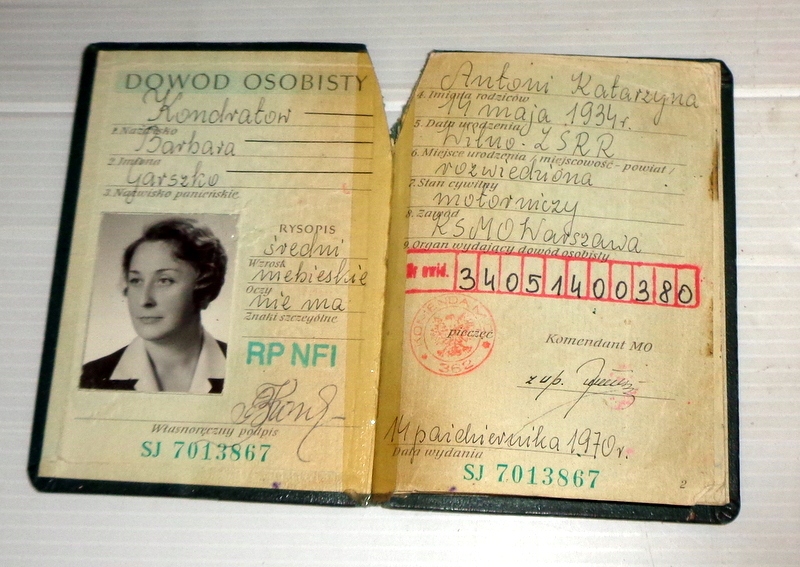 DOWÓD OSOBISTY
Kondratow
1. Nazwisko
Barbara
2. Imiona
Garszko
3. Nazwisko panieńskie
RYSOPIS
średni
Wzrost
niebieskie
Oczy
nie ma
Znaki szczególne
RP NFI
Własnoręczny podpis
SJ 7013867
Antoni Katarzyna
4. Imiona rodziców
14 maja 1934r.
5. Data urodzenia
Wilno - ZSRR
6. Miejsce urodzenia / miejscowość - powiat /
rozwiedziona
7. Stan cywilny
motorniczy
8. Zawód
KSMO Warszawa
9. Organ wydający dowód osobisty
Nr ewid. 34051400380
KOMENDA M
362
pieczęć
Komendant MO
zup.
14 października 1970r.
Data wydania
SJ 7013867
2